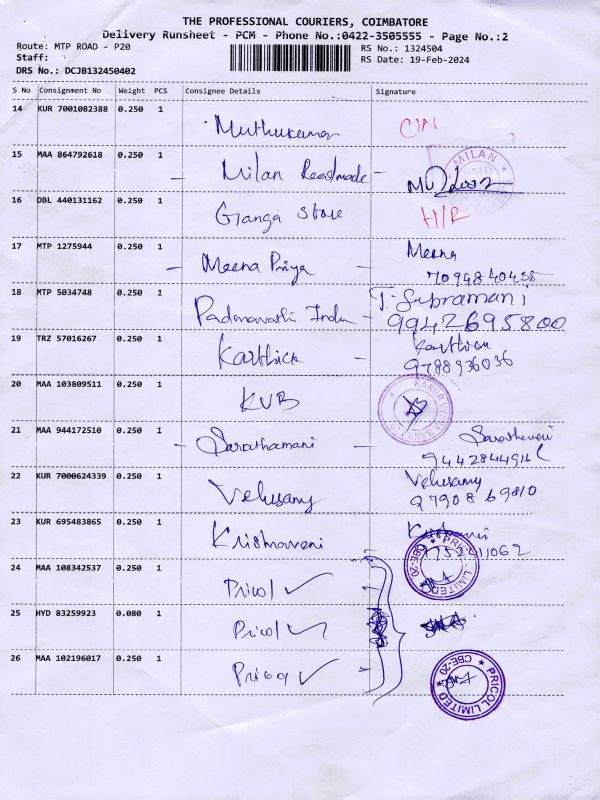 THE PROFESSIONAL COURIERS, COIMBATORE
Delivery Runsheet - PCM - Phone No.:0422-3505555 - Page No.:2
Route: MTP ROAD - P20
RS No.: 1324504
Staff:
RS Date: 19-Feb-2024
DRS No.: DCJB132450402
S No Consignment No Weight PCS Consignee Details Signature
14 KUR 7001082388 0.250 1 Muthukumar
15 MAA 864792618 0.250 1 Milan Readmade
MILAN
16 DBL 440131162 0.250 1 Ganga Store H/R
17 MTP 1275944 0.250 1 Meena Priya Meena
18 MTP 5034748 0.250 1 Padmavathi India T. Subramani
9942695800
19 TRZ 57016267 0.250 1 Karthick Karthick
9788936036
20 MAA 103809511 0.250 1 KVB
21 MAA 944172510 0.250 1 Sarathamani
22 KUR 7000624339 0.250 1 Velusamy Velusamy
97908 69810
23 KUR 695483865 0.250 1 Krishnaveni
24 MAA 108342537 0.250 1 Pricol
PRICOL LIMITED
CBE-20
25 HYD 83259923 0.080 1 Pricol
26 MAA 102196017 0.250 1 Pricol
PRICOL LIMITED
CBE-20